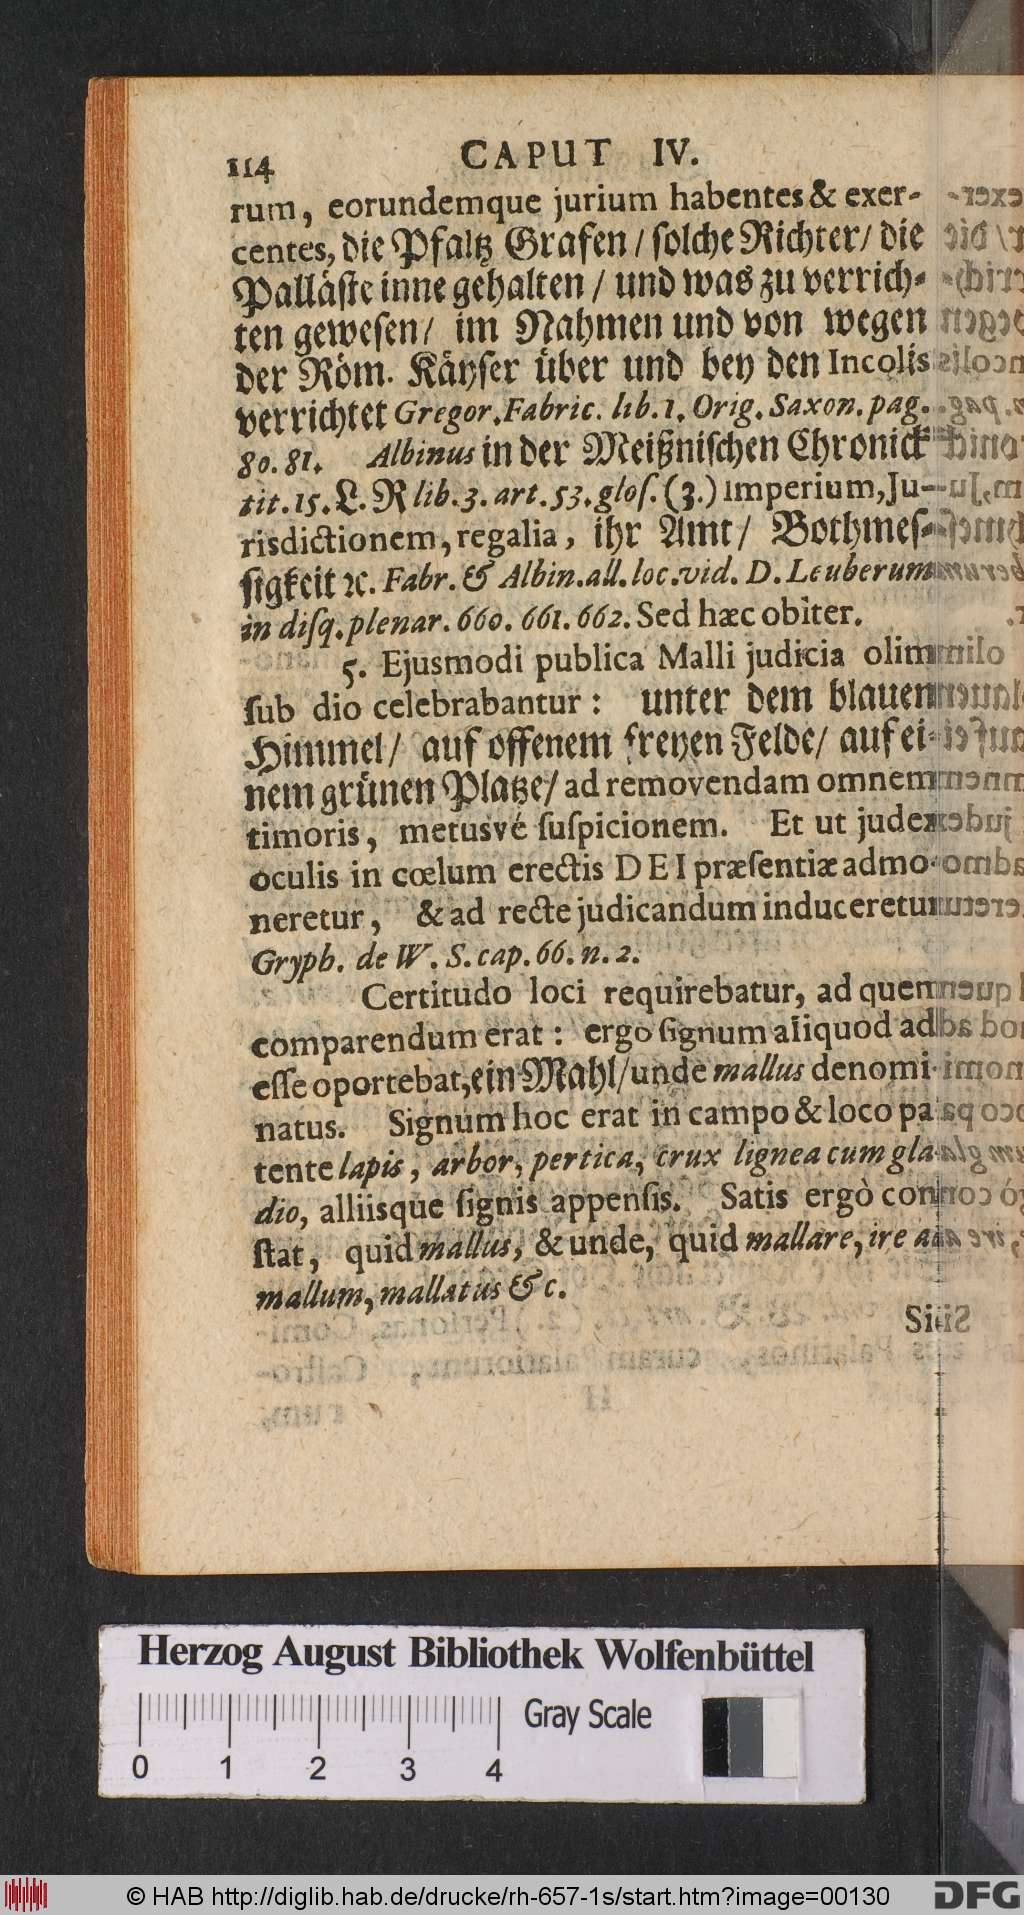 114 CAPUT IV.
rum, eorundemque jurium habentes & exer-
centes, die Pfaltz Grafen / ſolche Richter / die
Palläſte inne gehalten / und was zu verrich-
ten geweſen / im Nahmen und von wegen
der Röm. Käyſer über und bey den Incolis
verrichtet Gregor. Fabric. lib. 1. Orig. Saxon. pag.
80. 81. Albinus in der Meißniſchen Chronick
tit. 15. L. R lib. 3. art. 53. gloſ. (3.) Imperium, Ju-
risdictionem, regalia, ihr Amt / Bothmeſ-
ſigkeit ꝛc. Fabr. & Albin. all. loc. vid. D. Leuberum
in diſq. plenar. 660. 661. 662. Sed hæc obiter.
5. Ejusmodi publica Malli judicia olim
ſub dio celebrabantur: unter dem blauen
Himmel / auf offenem freyen Felde / auf ei-
nem grünen Platze / ad removendam omnem
timoris, metusvé ſuſpicionem. Et ut judex
oculis in cœlum erectis DEI præſentiæ admo-
neretur, & ad recte judicandum induceretur
Gryph. de W. S. cap. 66. n. 2.
Certitudo loci requirebatur, ad quem
comparendum erat: ergo ſignum aliquod ad
eſſe oportebat, ein Mahl / unde mallus denomi-
natus. Signum hoc erat in campo & loco pa
tente lapis, arbor, pertica, crux lignea cum gla-
dio, alliisque ſignis appenſis. Satis ergò con
ſtat, quid mallus, & unde, quid mallare, ire ad
mallum, mallatus & c.
Herzog August Bibliothek Wolfenbüttel
Gray Scale
0 1 2 3 4
© HAB http://diglib.hab.de/drucke/rh-657-1s/start.htm?image=00130
DFG